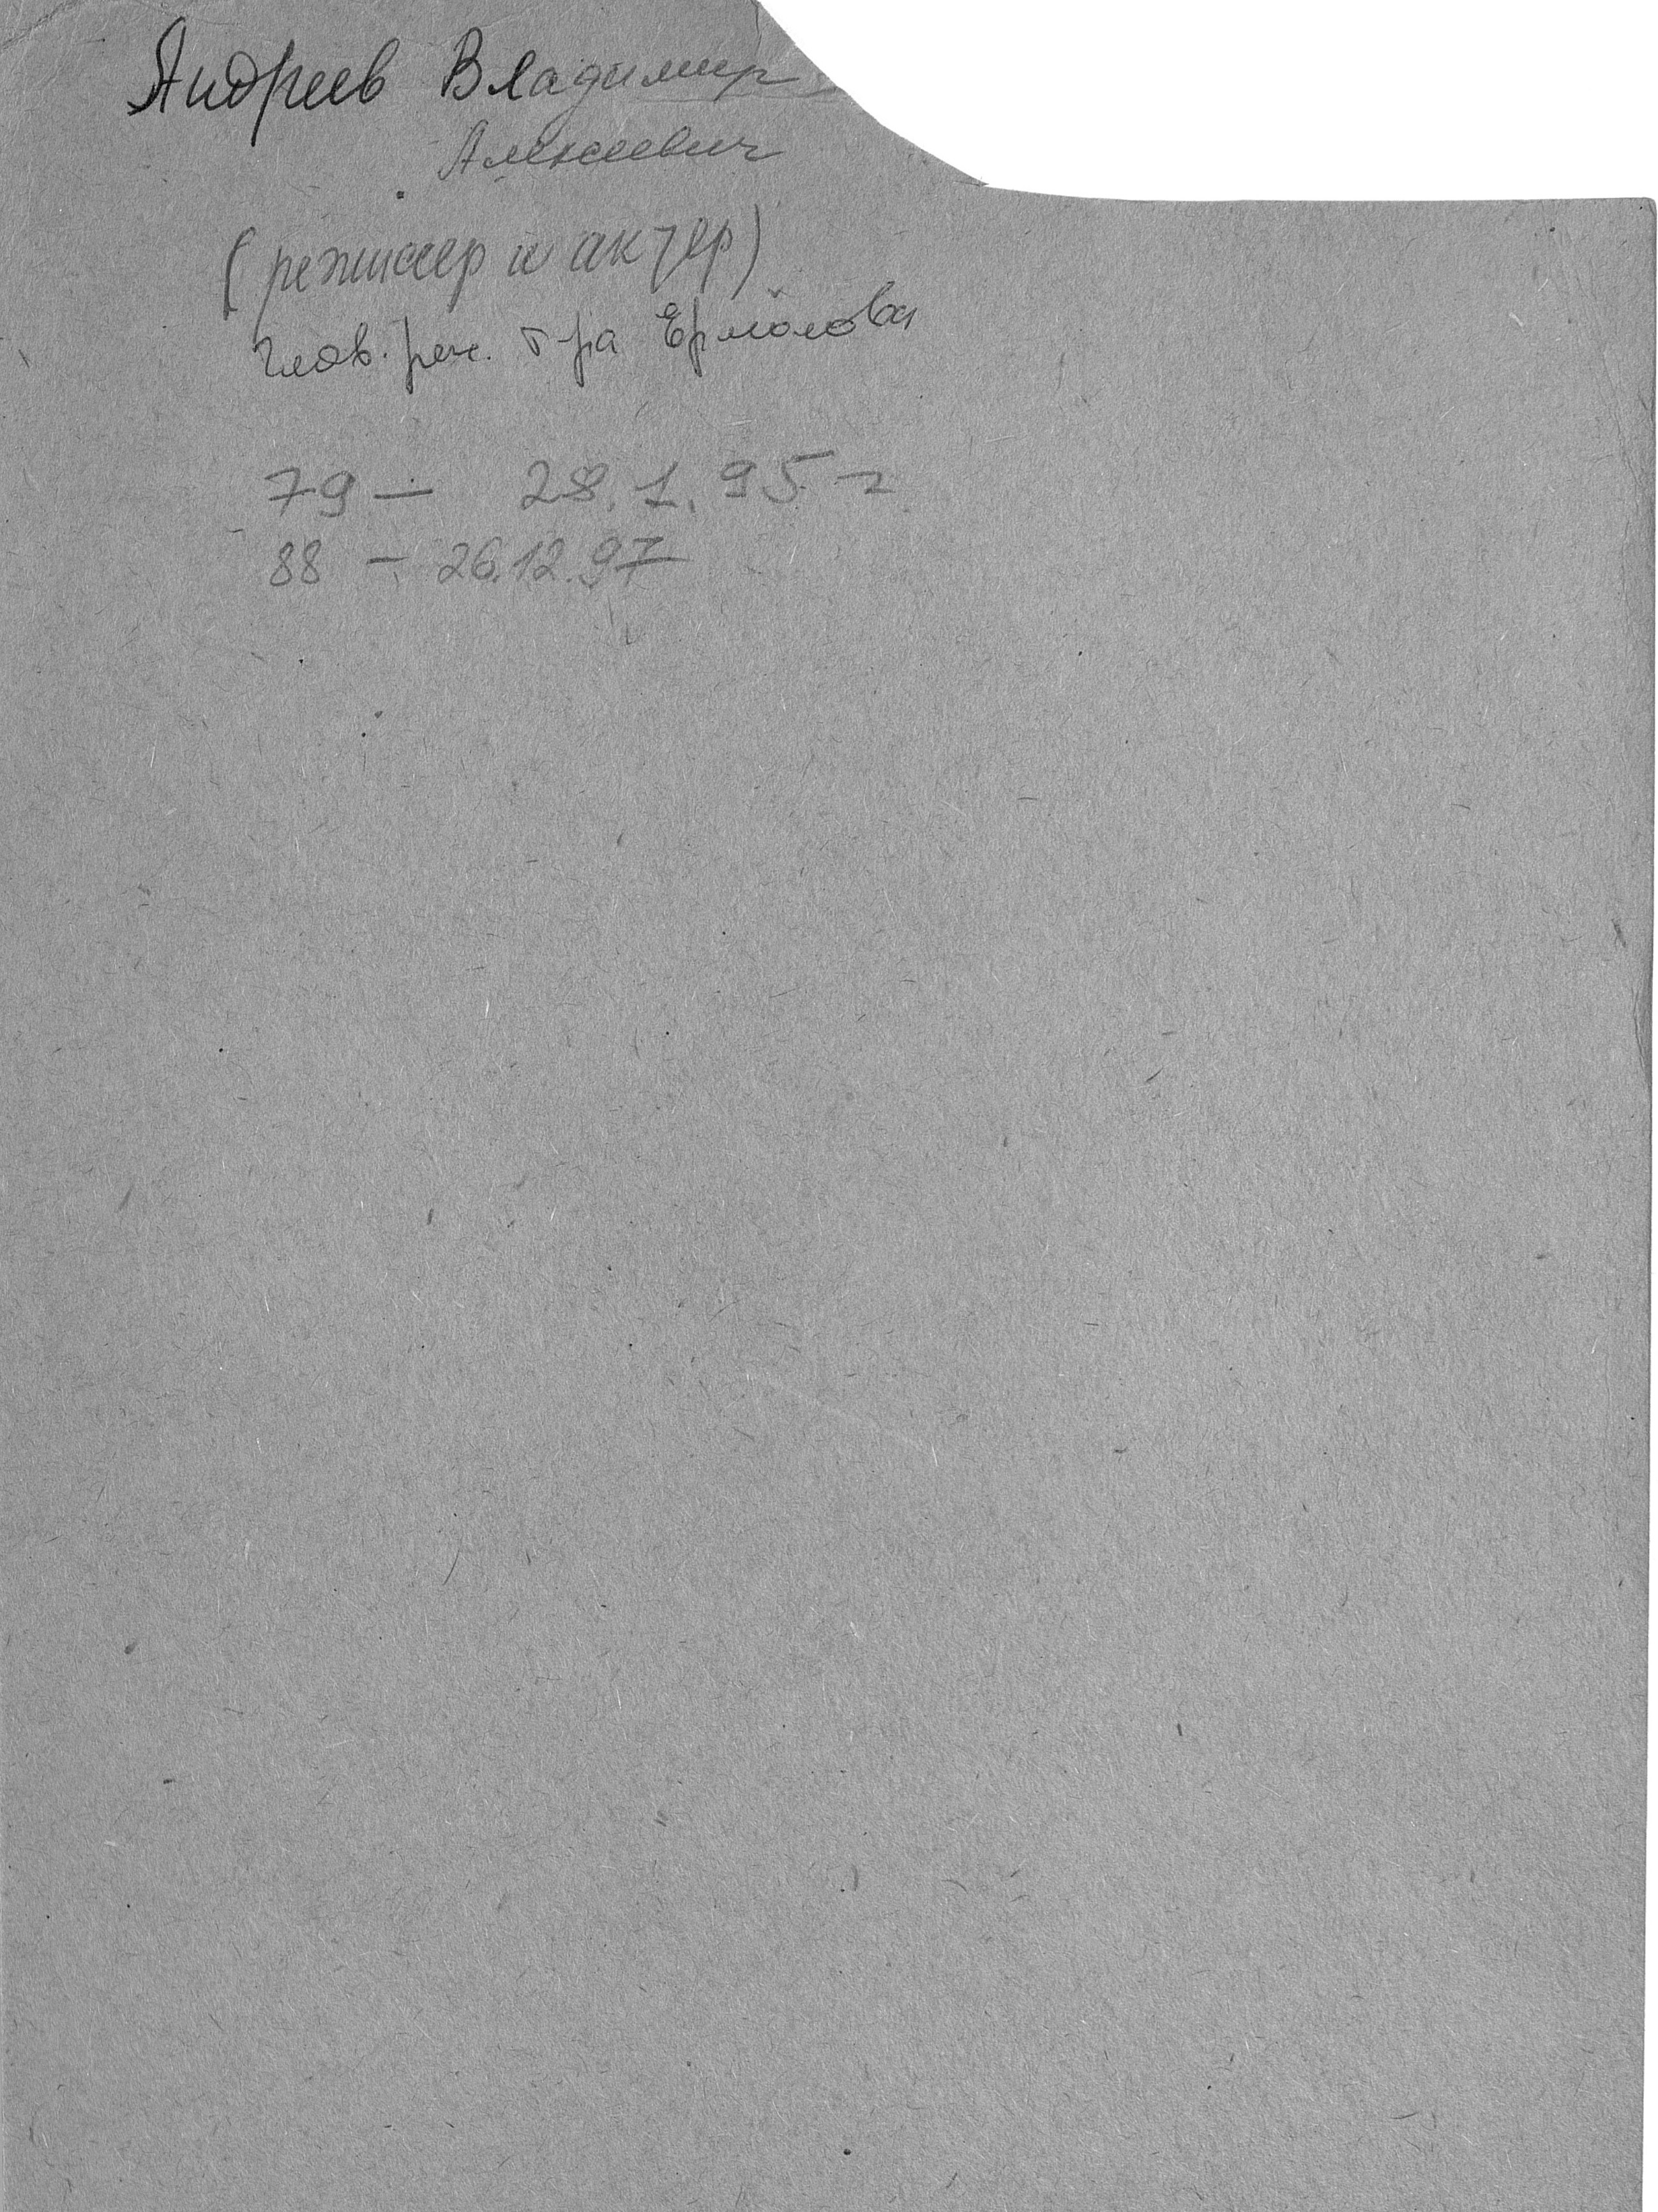 Андреев Владимир
Алексеевич
(режиссер и актер)
Глав. реж. т-ра Ермолова
79 — 28.1.95 г.
88 — 26.12.97